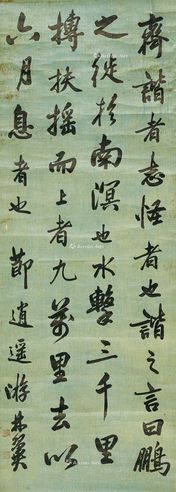 齊諧者志怪者也諧之言曰鵬
之徙於南溟也水擊三千里
摶扶搖而上者九萬里去以
六月息者也 節逍遥游 林翼